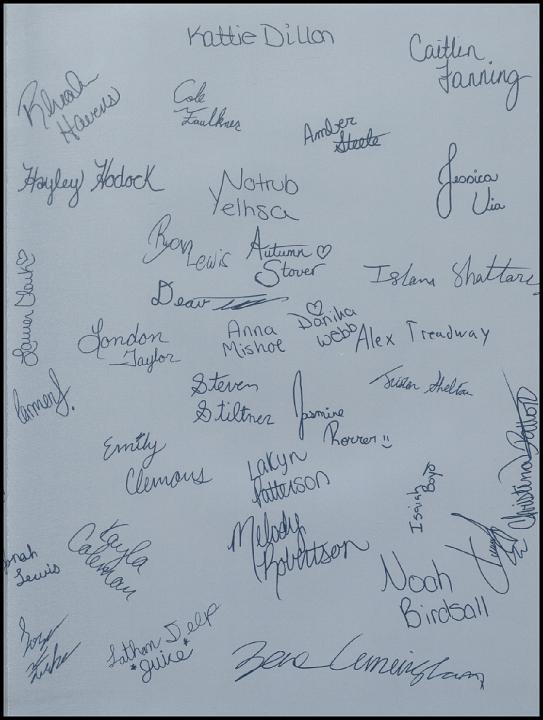 Kattie Dillon
Caitlin
Fanning
Rhiah
Havens
Cole
Faulkner
Amber
Steele
Hayley Hodock
Notrub
Yelhsa
Jessica
Via
Ryan
Lewis
Autumn ♡
Stover
Islam Shattari
Lauren Clark ♡
Dear
London
Taylor
Anna
Mishoe
♡
Danika
Webb
Alex Treadway
Carmen J.
Steven
Stiltner
Jasmine
Rorrer :)
Shelton
Christina
Emily
Clemons
Lakyn
Patterson
Isaiah
Boyd
Kayla
Coleman
Melody
Robertson
onah
Lewis
Noah
Birdsall
Lathan Delp
*Juice*